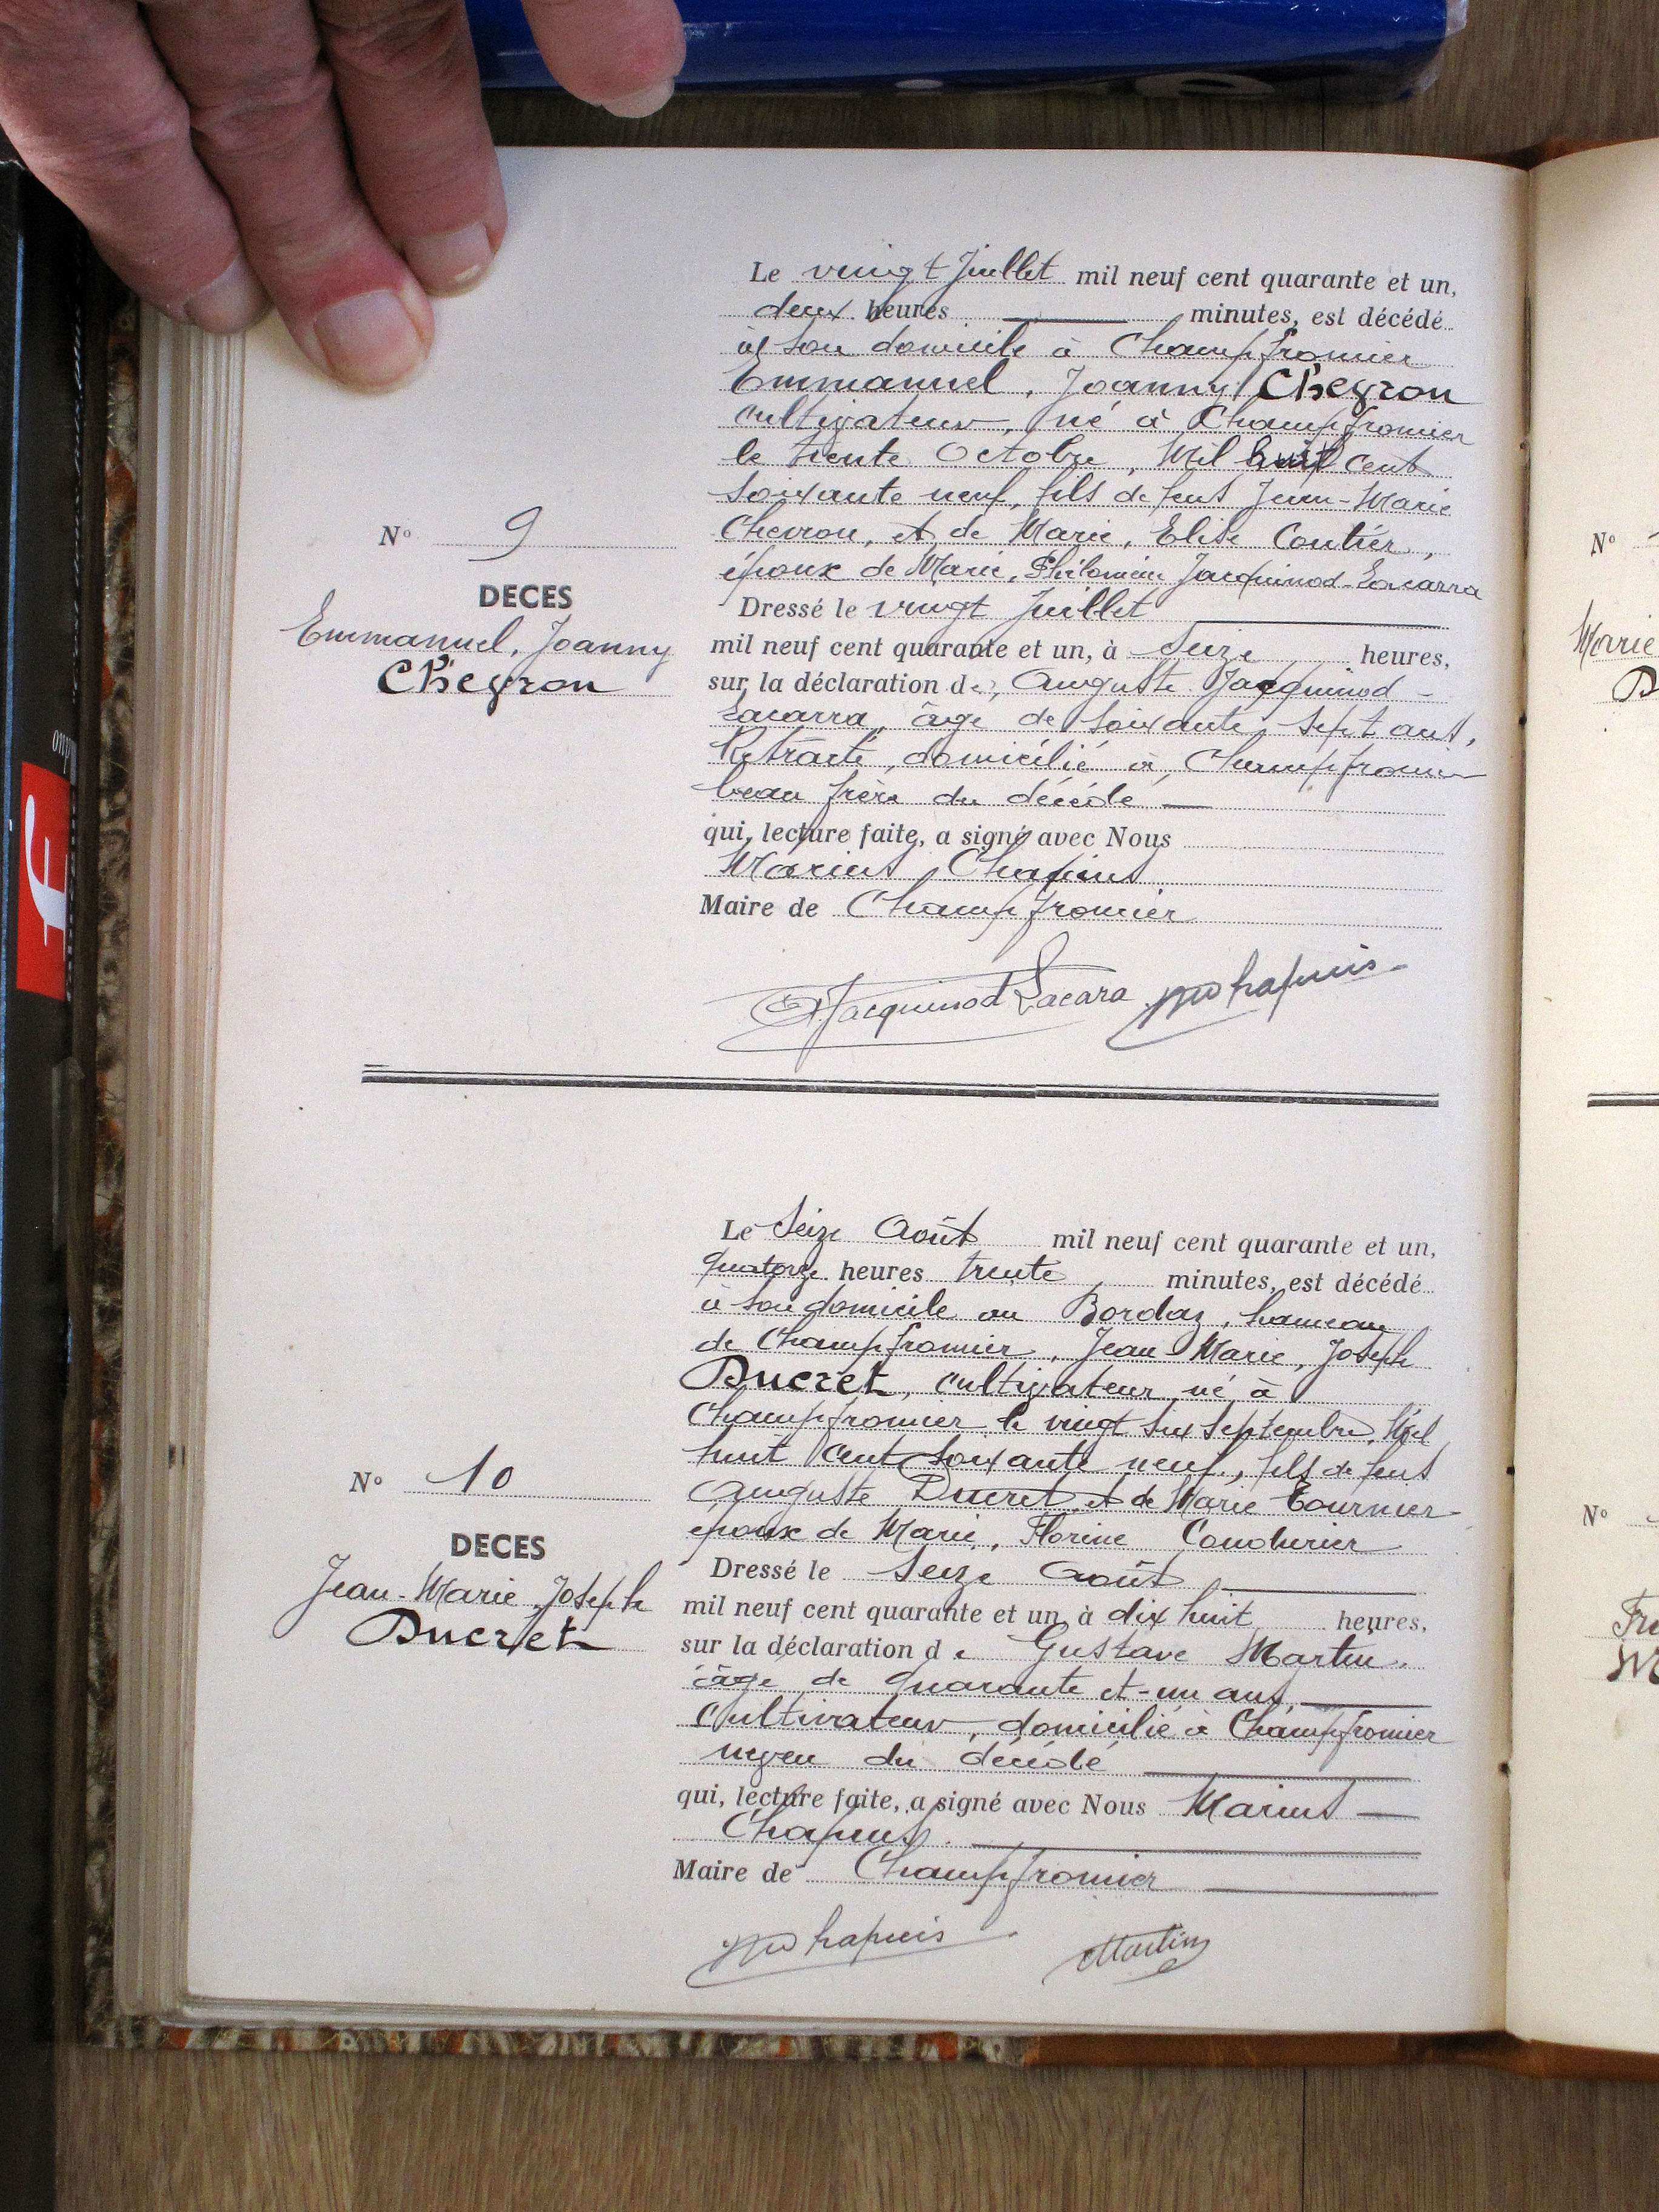 Le vingt Juillet mil neuf cent quarante et un,
deux heures minutes, est décédé
à son domicile à Champfromier
Emmanuel, Joanny Chevron
cultivateur, né à Champfromier
le trente Octobre, Mil huit cent
soixante neuf, fils de feus Jean-Marie
Chevron, et de Marie, Elise Coutier,
époux de Marie, Philomène Jacquinod-Lacarra
N° 9
DECES
Emmanuel, Joanny
Chevron
Dressé le vingt Juillet
mil neuf cent quarante et un, à Seize heures,
sur la déclaration de, Auguste Jacquinod-
Lacarra, âgé de soixante sept ans,
Retraité, domicilié à Champfromier
beau frère du décédé
qui, lecture faite, a signé avec Nous
Marius Chapuis
Maire de Champfromier
Jacquinod Lacara Mchapuis
Le Seize Août mil neuf cent quarante et un,
quatorze heures trente, minutes, est décédé
à son domicile au Bordaz, hameau
de Champfromier, Jean Marie, Joseph
Ducret, cultivateur, né à
Champfromier le vingt six Septembre, Mil
huit cent soixante neuf, fils de feus
Auguste Ducret et de Marie Tournier
époux de Marie, Florine Coudurier
N° 10
DECES
Jean-Marie, Joseph
Ducret
Dressé le Seize Août
mil neuf cent quarante et un, à dix huit heures,
sur la déclaration de Gustave Martin,
âgé de quarante et-un ans,
cultivateur, domicilié à Champfromier
neveu du décédé
qui, lecture faite, a signé avec Nous Marius
Chapuis.
Maire de Champfromier
Mchapuis Martin
N°
Marie
N°